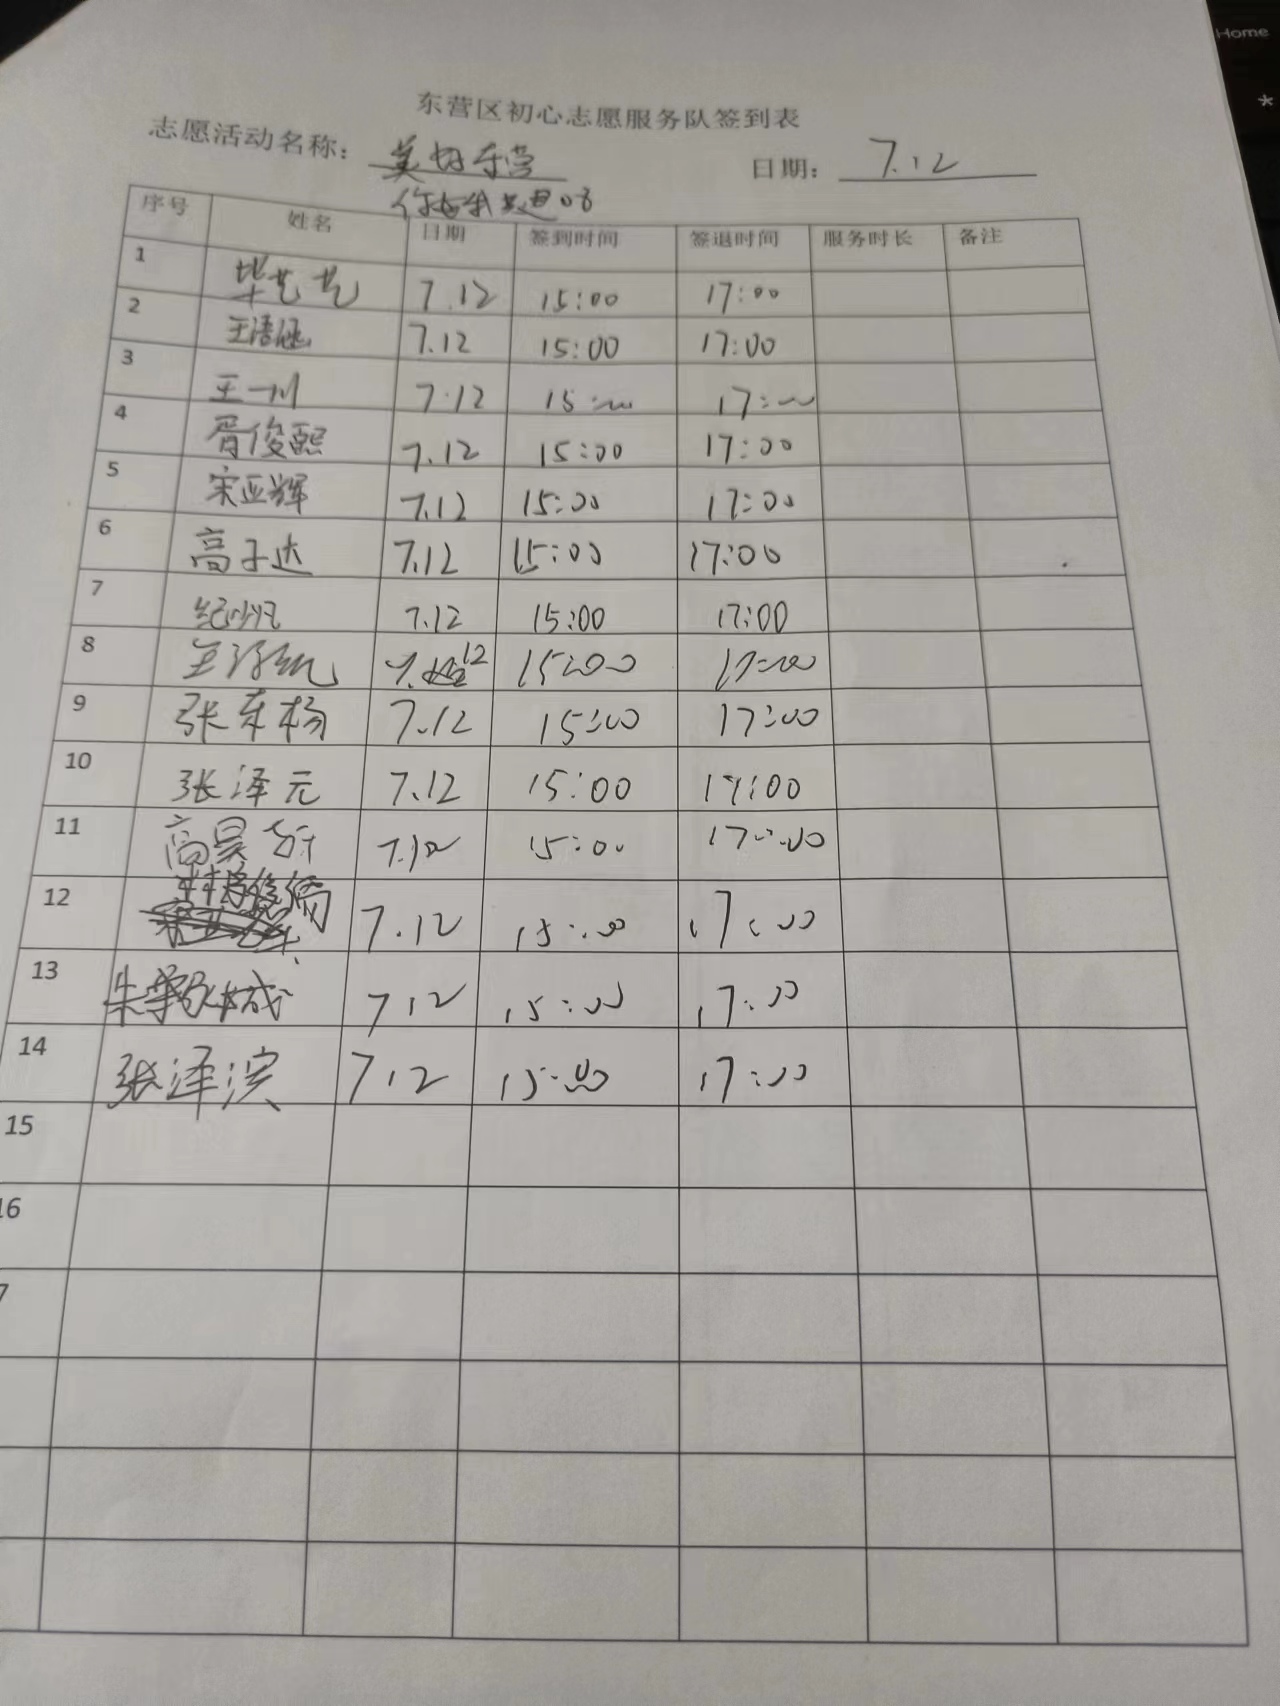 Home
*
东营区初心志愿服务队签到表
志愿活动名称： 美好东营 日期： 7.12
序号 姓名 日期 签到时间 签退时间 服务时长 备注
1 毕艺艺 7.12 15:00 17:00
2 王语涵 7.12 15:00 17:00
3 王一川 7.12 15:00 17:00
4 胥俊熙 7.12 15:00 17:00
5 宋亚辉 7.12 15:00 17:00
6 高子达 7.12 15:00 17:00
7 7.12 15:00 17:00
8 7.12 15:00 17:00
9 张东杨 7.12 15:00 17:00
10 张泽元 7.12 15:00 17:00
11 高昊 7.12 15:00 17:00
12 7.12 15:00 17:00
13 7.12 15:00 17:00
14 张泽滨 7.12 15:00 17:00
15
16
7